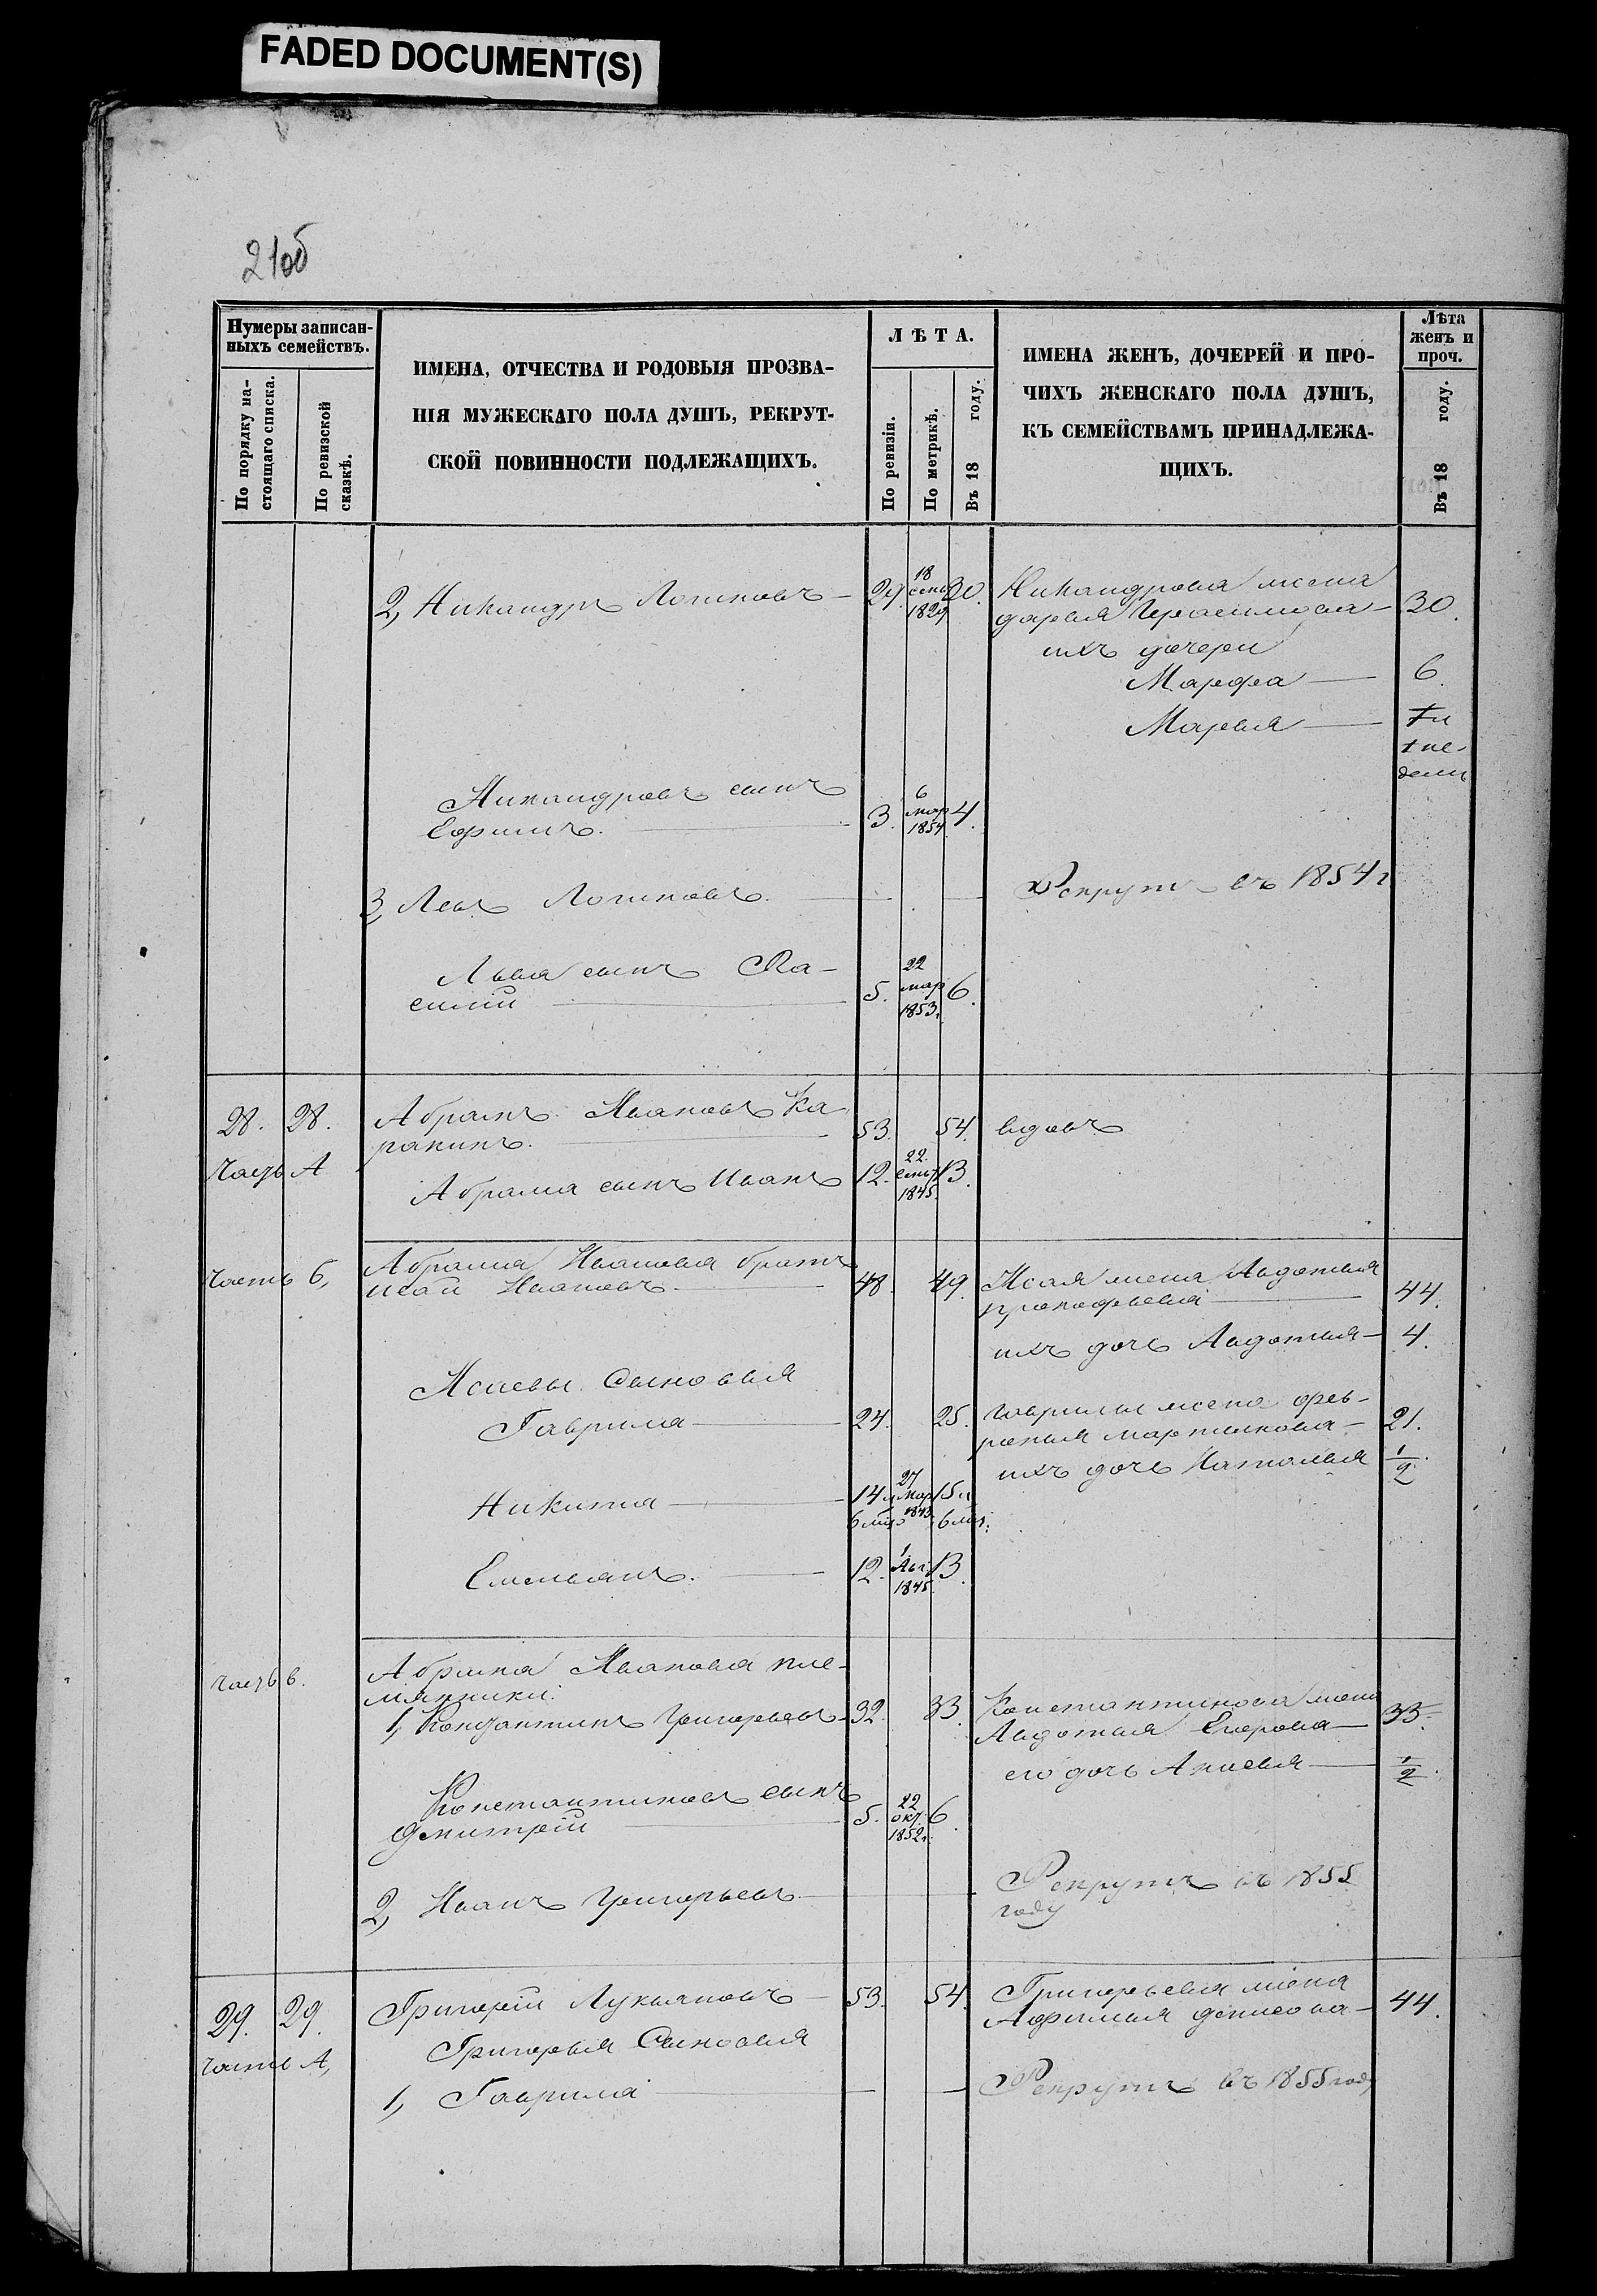 FADED DOCUMENT(S)
21об
Нумеры записан-
ныхъ семействъ.
По порядку на-
стоящаго списка.
По ревизской
сказкѣ.
ИМЕНА, ОТЧЕСТВА И РОДОВЫЯ ПРОЗВА-
НІЯ МУЖЕСКАГО ПОЛА ДУШЪ, РЕКРУТ-
СКОЙ ПОВИННОСТИ ПОДЛЕЖАЩИХЪ.
ЛѢТА.
По ревизіи.
По метрикѣ.
Въ 18 году.
ИМЕНА ЖЕНЪ, ДОЧЕРЕЙ И ПРО-
ЧИХЪ ЖЕНСКАГО ПОЛА ДУШЪ,
КЪ СЕМЕЙСТВАМЪ ПРИНАДЛЕЖА-
ЩИХЪ.
Лѣта
женъ и
проч.
Въ 18 году.
2, Никандръ Логиновъ — 29. 18 сент 1829 30.
Никандрова жена
дарья Герасимова — 30.
ихъ дочери
Марфа — 6.
Марья —
не-
дели
Никандровъ сынъ
Ефимъ. — 3. 6 мар 1854 4.
3, Левъ Логиновъ. —
Рекрут въ 1854 г
Льва сынъ Ва-
силій — 5. 22 мар 1853. 6.
28. 28. Абрамъ Ивановъ Ка-
ракинъ. — 53. 54. вдовъ
Часть А
Абрама сынъ Иванъ 12. 22. сент 1845. 13.
Часть б, Абрама Иванова братъ
Исай Ивановъ — 48. 49.
Исая жена Авдотья
прокофьева — 44.
ихъ дочь Авдотья — 4.
Исаевы Сыновья
Гаврила — 24. 25.
гаврилы жена фев-
ронья мартинова — 21.
ихъ дочь Наталья 1/2.
Никита — 14 и 6 мѣс 27 мар 1843. 15 и 6 мѣс.
Емельянъ. — 12. 1 Авг 1845 13.
часть в. Абрама Иванова пле-
мянники:
1, Константинъ Григорьевъ — 32. 33.
Константинова жена
Авдотья Егорова — 33.
его дочь Анисья — 1/2.
Константиновъ сынъ
Дмитрей — 5. 22 окт. 1852 г. 6.
2, Иванъ Григорьевъ —
Рекрутъ въ 1855
году
29. 29. Григорій Лукьяновъ — 53. 54.
Григорьева жена
Афимья денисова — 44.
часть А,
Григорья Сыновья
1, Гаврила —
Рекрутъ въ 1855 году